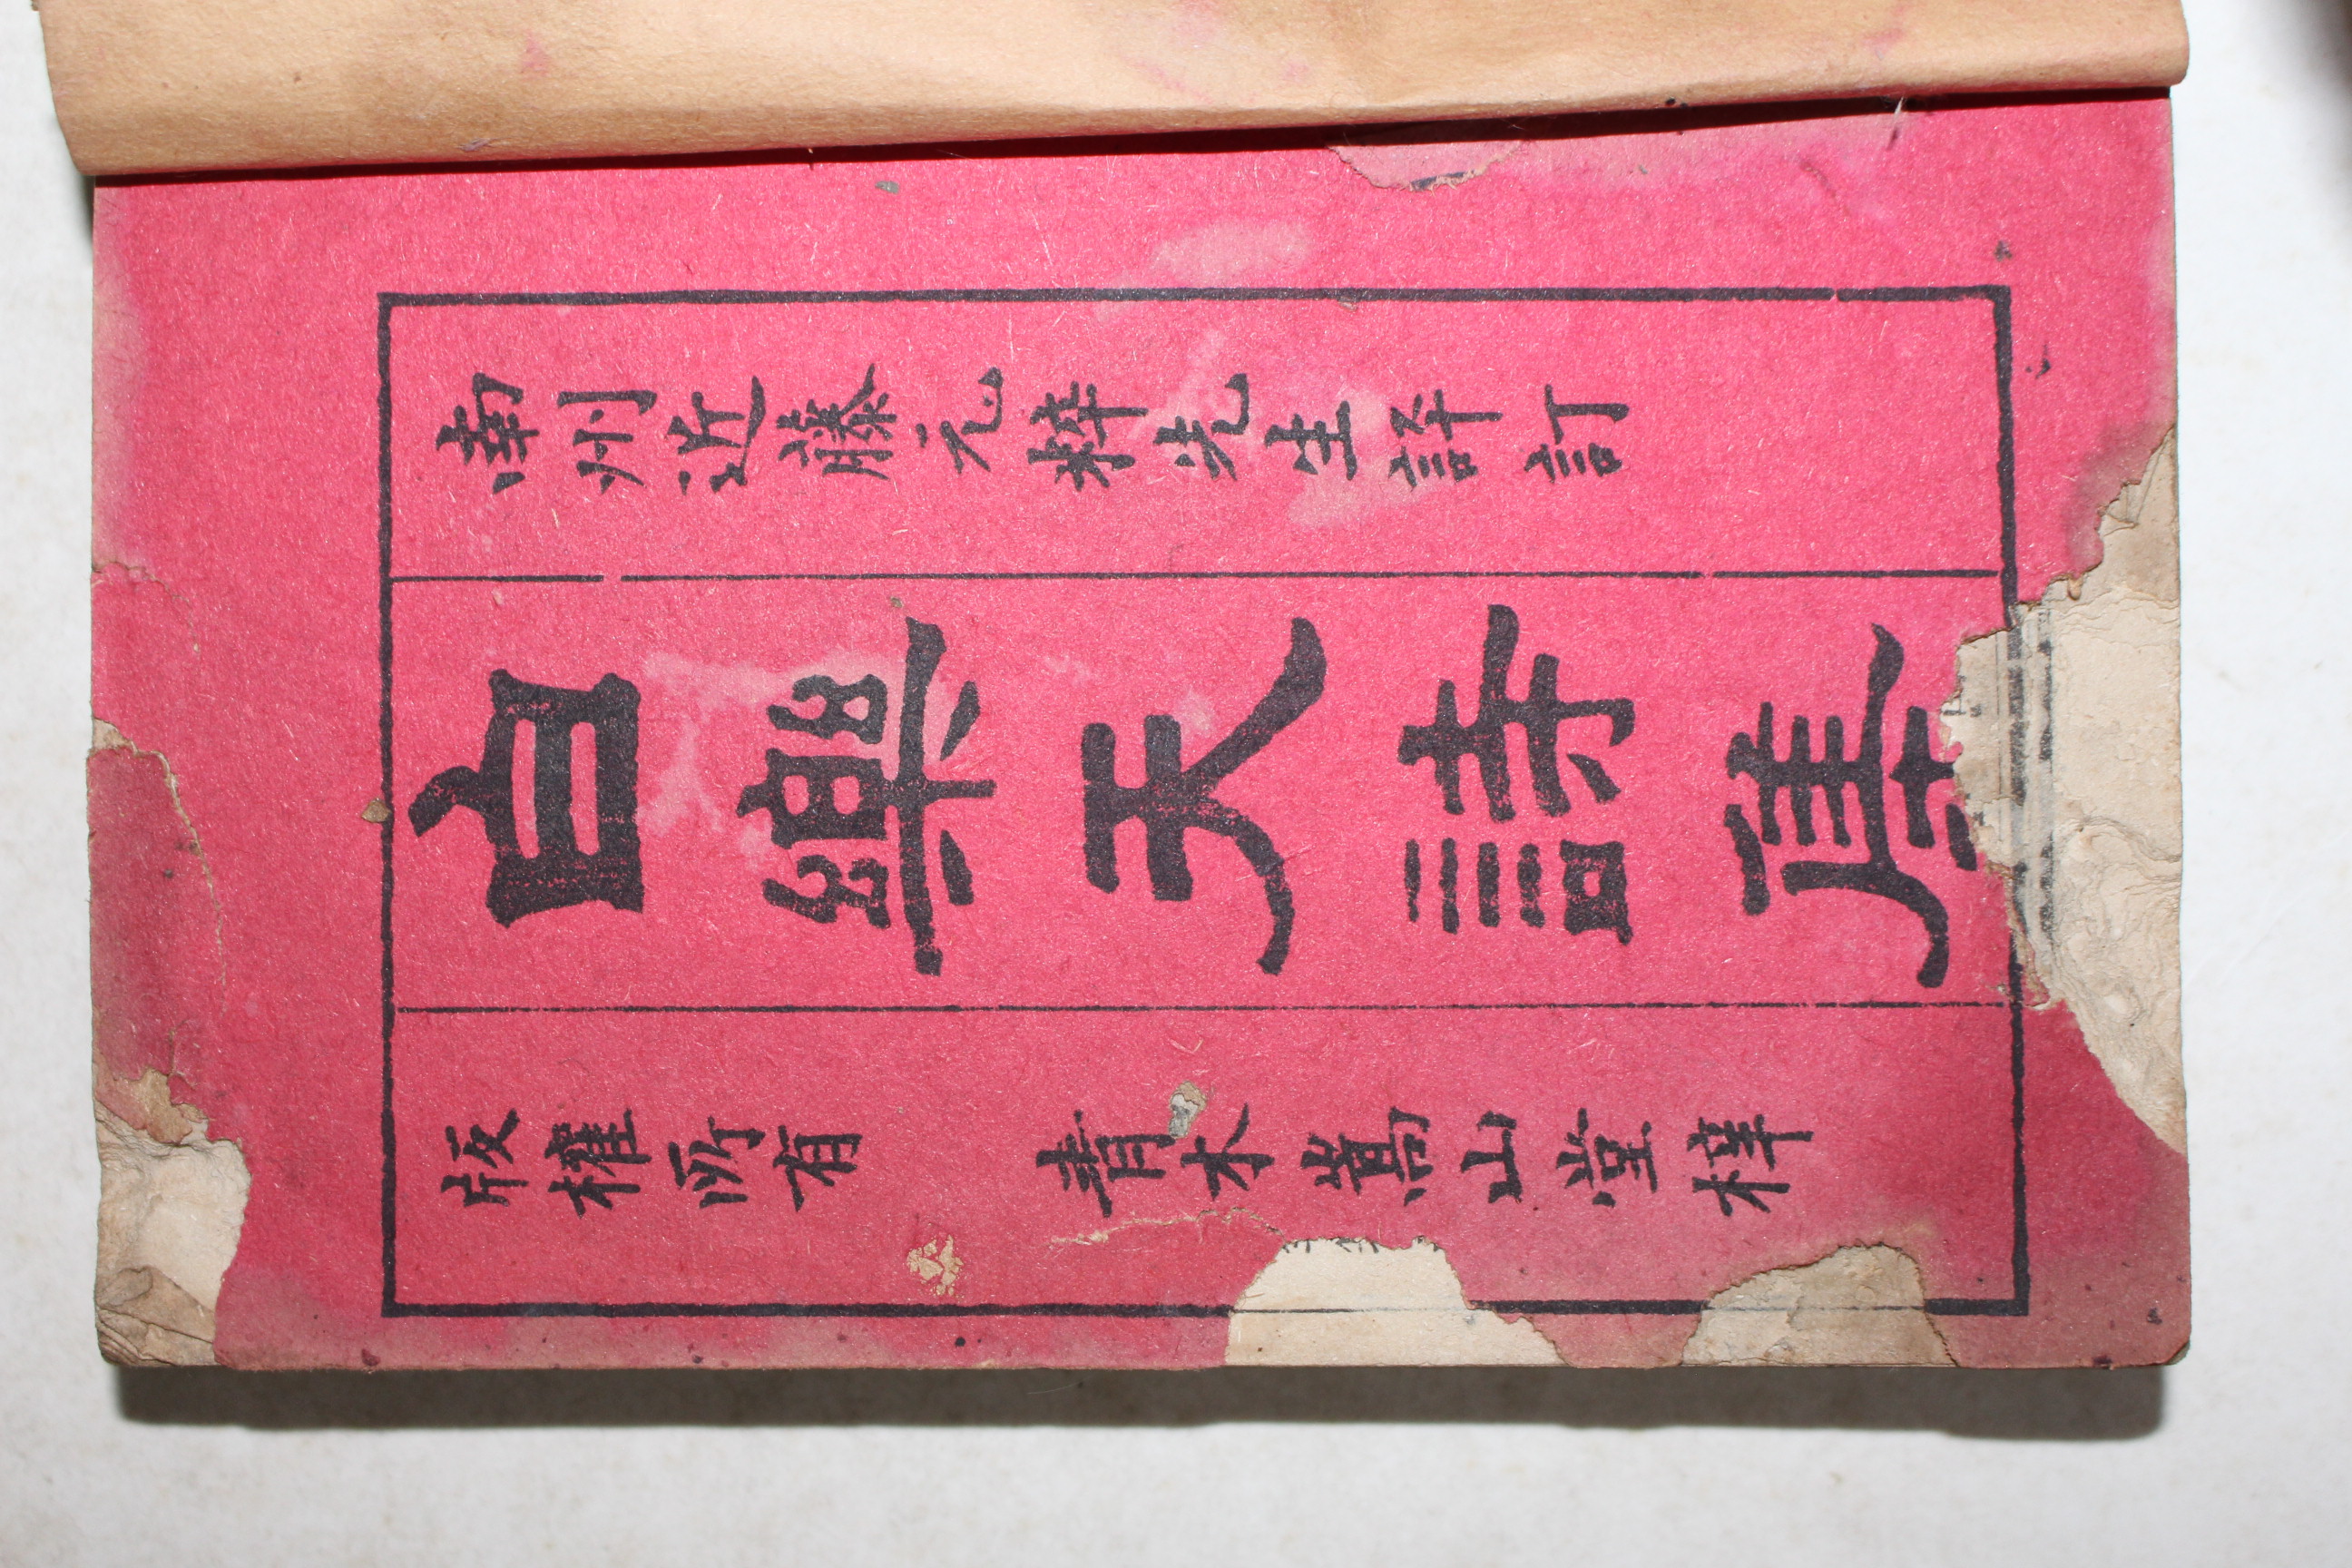 南州近藤元粹先生評訂
白樂天詩集
版權所有 青木嵩山堂梓